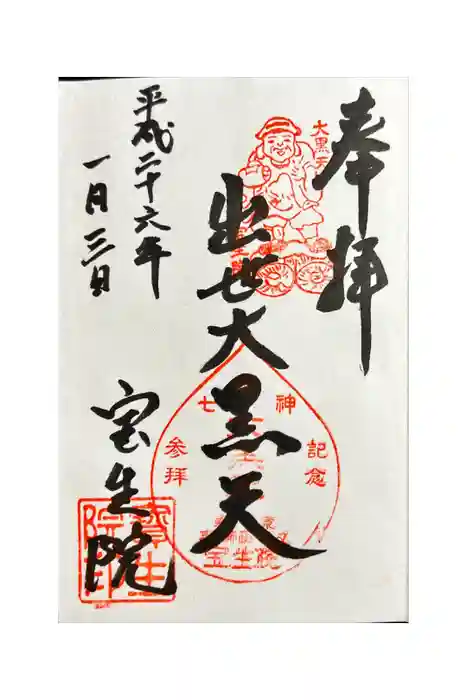 奉拝
大黒天
出世大黒天
七
神
参拝
記念
平成二十六年
一月三日
宝生院
寳生
院印